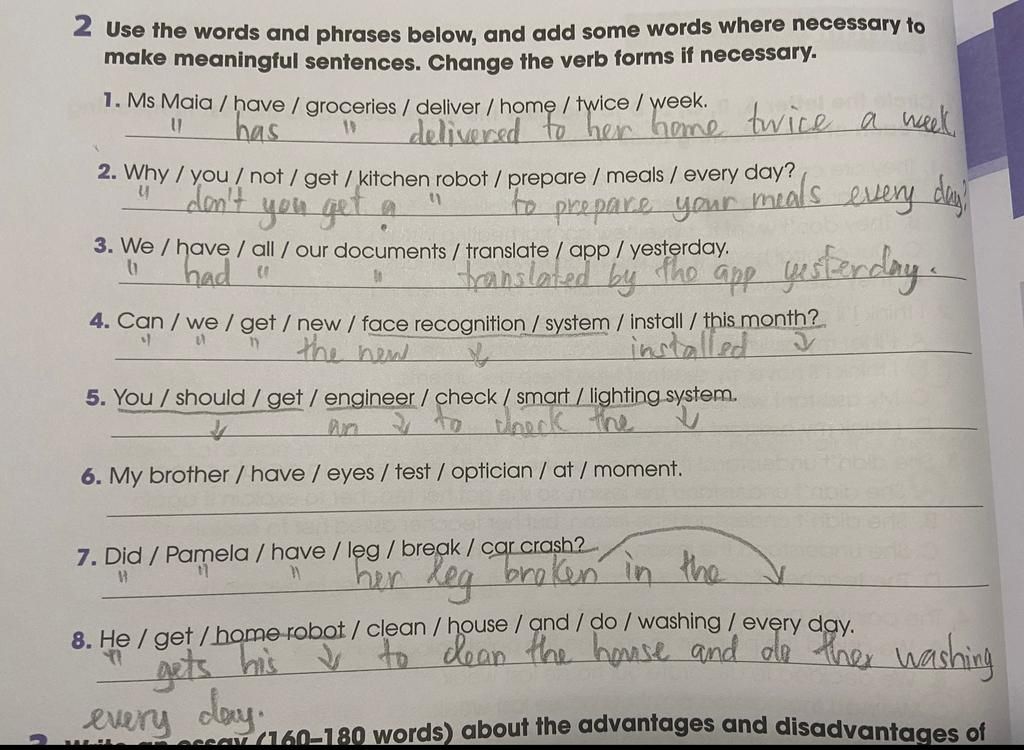 2 Use the words and phrases below, and add some words where necessary to
make meaningful sentences. Change the verb forms if necessary.
1. Ms Maia / have / groceries / deliver / home / twice / week.
" has " delivered to her home twice a week
2. Why / you / not / get / kitchen robot / prepare / meals / every day?
" don't you get a " to prepare your meals every day?
3. We / have / all / our documents / translate / app / yesterday.
" had " " translated by the app yesterday.
4. Can / we / get / new / face recognition / system / install / this month?
" " " the new ↓ installed ↓
5. You / should / get / engineer / check / smart / lighting system.
↓ an ↓ to check the ↓
6. My brother / have / eyes / test / optician / at / moment.
7. Did / Pamela / have / leg / break / car crash?
" " " her leg broken in the
8. He / get / home robot / clean / house / and / do / washing / every day.
" gets his ↓ to clean the house and do washing
every day.
essay (160–180 words) about the advantages and disadvantages of